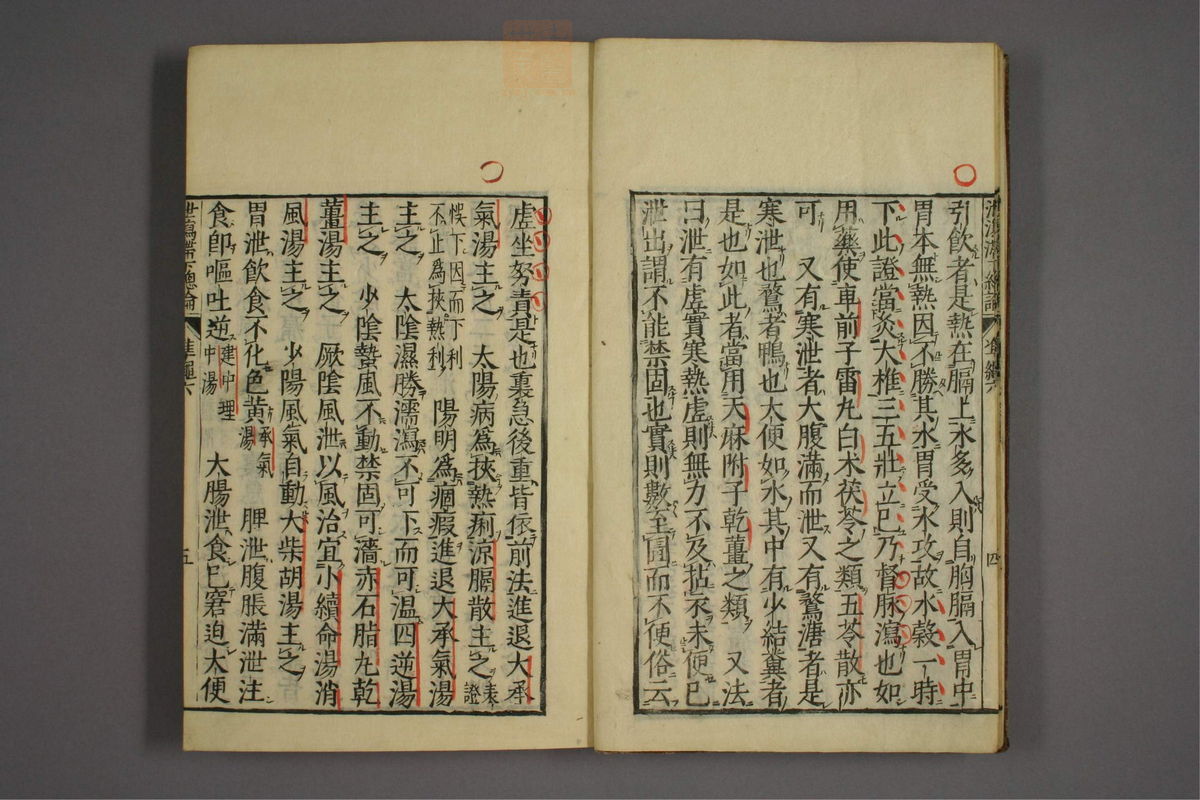 引飲者是熱在膈上水多入則自胸膈入胃中
胃本無熱因不勝其水胃受水攻故水穀一時
下此證當灸大椎三五壯立已乃督脉瀉也如
用藥使車前子雷丸白朮茯苓之類五苓散亦
可　又有寒泄者大腹滿而泄又有鶩溏者是
寒泄也鶩者鴨也大便如水其中有少結糞者
是也如此者當用天麻附子乾薑之類　又法
曰泄有虛實寒熱虛則無力不及拈衣未便已
泄出謂不能禁固也實則數至圊而不便俗云
四
虛坐努責是也裏急後重皆依前法進退大承
氣湯主之　太陽病為挾熱痢涼膈散主之表證
悞下因而下利
不止為挾熱利　陽明為痼瘕進退大承氣湯
主之　太陰濕勝濡瀉不可下而可温四逆湯
主之　少陰蟄風不動禁固可濇赤石脂丸乾
薑湯主之　厥陰風泄以風治宜小續命湯消
風湯主之　少陽風氣自動大柴胡湯主之
胃泄飲食不化色黃承氣湯　脾泄腹脹滿泄注
食卽嘔吐逆建中理中湯　大腸泄食已窘迫大便
泄瀉滯下總論　準繩六　五